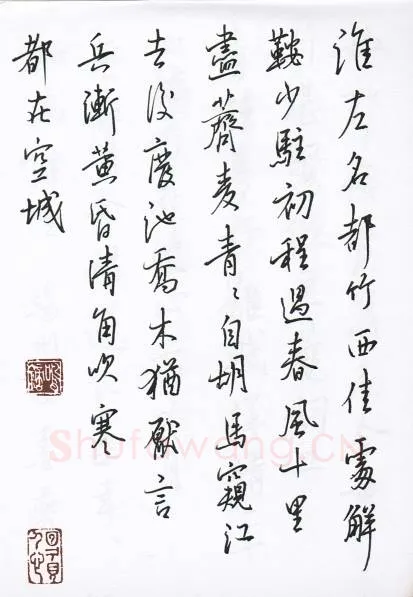 淮左名都竹西佳處解
鞍少駐初程過春風十里
盡薺麥青〻自胡馬窺江
去後廢池喬木猶厭言
兵漸黄昏清角吹寒
都在空城
Shufawang.CN